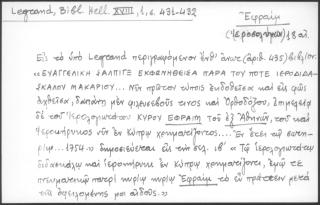 Legrand, Bibl. Hell. XVIII, 1, σ. 431-432
Ἐφραὶμ
(Ἱεροσολύμων) 18 αἰ.
Εἰς τὸ ὑπὸ Legrand περιγραφόμενον ἔνθ' ἄνωτ. (ἀριθ. 435) βιβλίον
«ΕΥΑΓΓΕΛΙΚΗ ΣΑΛΠΙΓΞ ΕΚΦΩΝΗΘΕΙΣΑ ΠΑΡΑ ΤΟΥ ΠΟΤΕ ΙΕΡΟΔΙΔΑ-
ΣΚΑΛΟΥ ΜΑΚΑΡΙΟΥ... Νῦν πρῶτον τύποις ἐκδοθεῖσα καὶ εἰς φῶς
ἀχθεῖσα, δαπάνῃ μὲν φιλευσεβοῦς τινος καὶ Ὀρθοδόξου, ἐπιμελείᾳ
δὲ τοῦ Ἱερολογιωτάτου ΚΥΡΟΥ ΕΦΡΑΙΜ τοῦ ἐξ Ἀθηνῶν, τοῦ καὶ
Ἱεροκήρυκος νῦν ἐν Κύπρῳ χρηματίζοντος.... Ἐν ἔτει τῷ σωτη-
ρίῳ... 1754.» δημοσιεύεται εἰς τὴν σελ. ιβ' «Τῷ ἱερολογιωτάτῳ
διδασκάλῳ καὶ ἱεροκήρυκι ἐν Κύπρῳ χρηματίζοντι, ἐμῷ τε
πνευματικῷ πατρὶ κυρίῳ κυρίῳ Ἐφραὶμ τὸ εὖ πράττειν μετὰ
τῆς ὀφειλομένης μοι αἰδοῦς.»